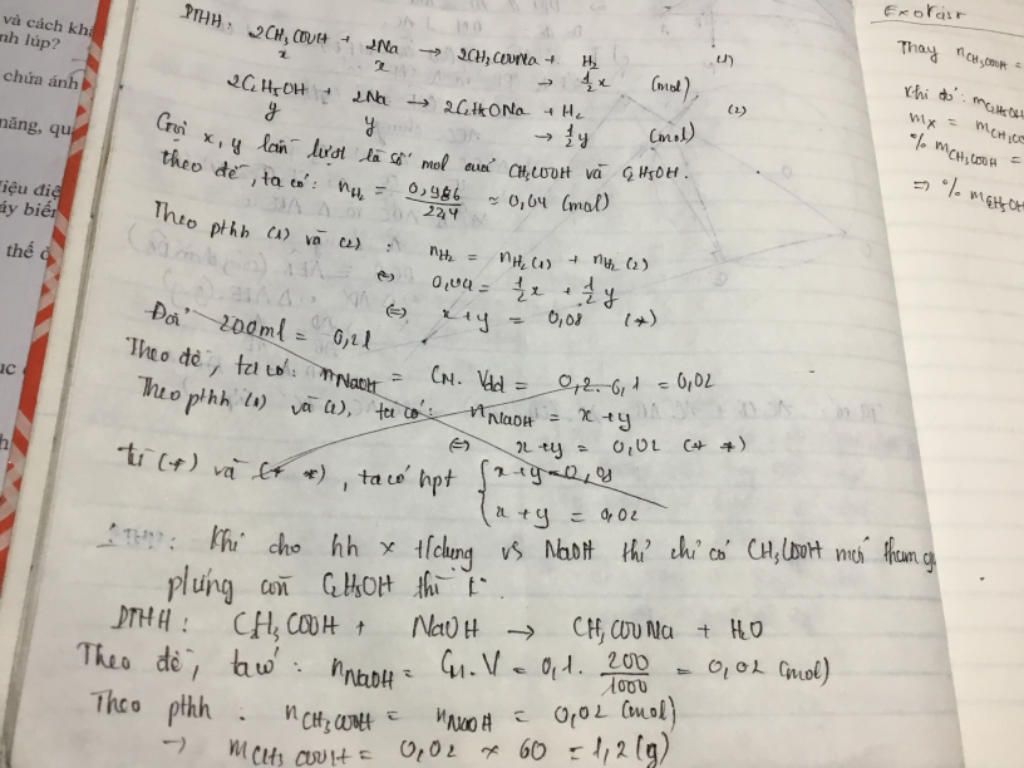 và cách kh
nh lúp?
chứa ánh
năng, qu
điệu điệ
áy biến
thế ở
PTHH: 2CH₃COOH + 2Na → 2CH₃COONa + H₂ (1)
x x → ½x (mol)
2C₂H₅OH + 2Na → 2C₂H₅ONa + H₂ (2)
y y → ½y (mol)
Gọi x, y lần lượt là số mol của CH₃COOH và C₂H₅OH.
theo đề, ta có: nH₂ = 0,986/22,4 ≈ 0,04 (mol)
Theo pthh (1) và (2): nH₂ = nH₂(1) + nH₂(2)
⇔ 0,04 = ½x + ½y
⇔ x+y = 0,08 (*)
Đổi 200ml = 0,2l
Theo đề, ta có: nNaOH = CM. Vdd = 0,2. 0,1 = 0,02
Theo pthh (1) và (2), ta có: nNaOH = x+y
⇔ x+y = 0,02 (**)
từ (*) và (**), ta có hpt { x+y = 0,08
x+y = 0,02
: Khi cho hh x t/dụng vs NaOH thì chỉ có CH₃COOH mới tham g
p/ứng còn C₂H₅OH thì k.
PTHH: CH₃COOH + NaOH → CH₃COONa + H₂O
Theo đề, ta có: nNaOH = CM.V = 0,1. 200/1000 = 0,02 (mol)
Theo pthh: nCH₃COOH = nNaOH = 0,02 (mol)
→ mCH₃COOH = 0,02 × 60 = 1,2 (g)
Thay nCH₃COOH =
Khi đó: mC₂H₅OH
mX = mCH₃CO
% mCH₃COOH =
⇒ % mC₂H₅OH